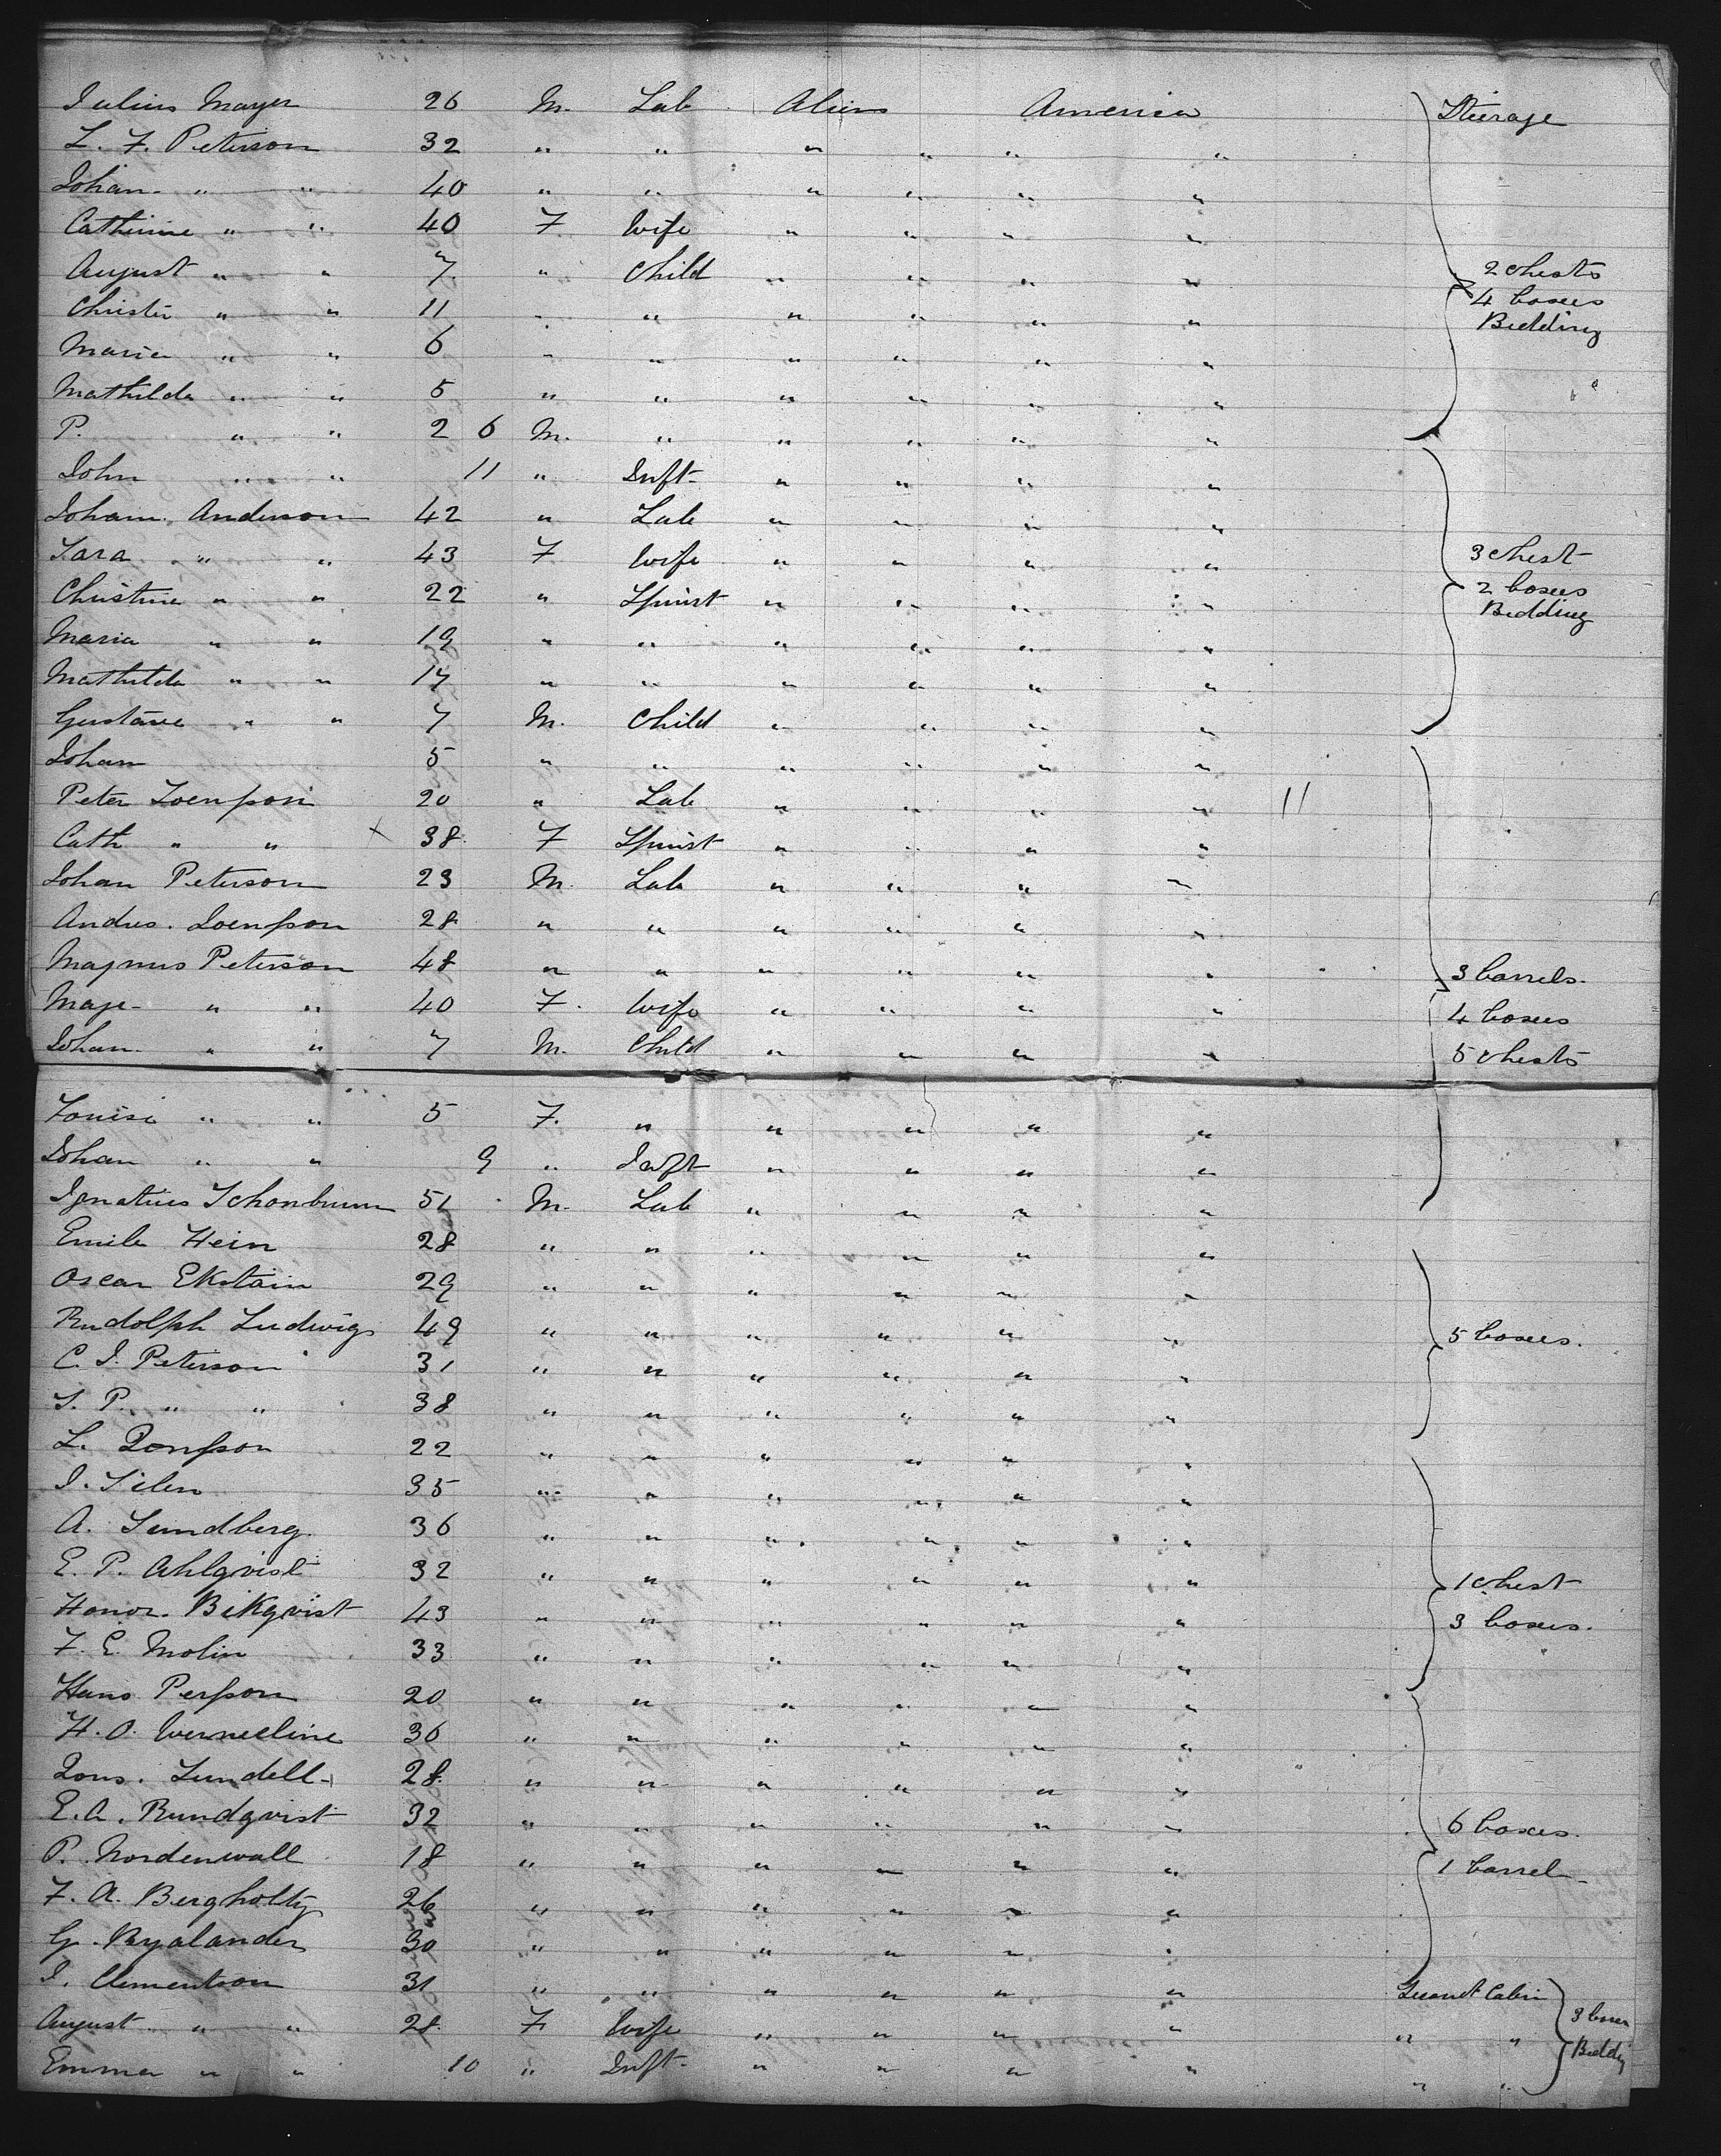 Julius Mayer 26 M. Lab Aliens America Steerage
L. F. Peterson 32 " " " " " "
Johan " " 40 " " " " " "
Catherine " " 40 F Wife " " " "
August " " 7 " Child " " " " 2 Chests
Christin " " 11 " " " " " " 4 boxes
Maria " " 6 " " " " " " Bedding
Mathilda " " 5 " " " " " "
P. " " 2 6 M. " " " " "
John " " 11 " Inft- " " " "
Johan. Anderson 42 " Lab " " " "
Sara " " 43 F Wife " " " " 3 Chest
Christine " " 22 " Spinst " " " " 2 boxes
Maria " " 19 " " " " " " Bedding
Mathilda " " 17 " " " " " "
Gustave " " 7 M. Child " " " "
Johan 5 " " " " " "
Peter 20 " Lab " " " " 11
Cath " " x 38 F Spinst " " " "
Johan Peterson 23 M. Lab " " " "
Andus. 28 " " " " " "
Magnus Peterson 48 " " " " " " 3 barrels.
Maje- " " 40 F. Wife " " " " 4 boxes
Johan " " 7 M. Child " " " " 5 Chests
Louise " " 5 F. " " " " "
Johan " " 9 " Inft " " " "
Ignatius Schonbrunn 51 M. Lab " " " "
Emile Hein 28 " " " " " "
Oscar Ekstain 29 " " " " " "
Rudolph Ludwigs 49 " " " " " " 5 boxes.
C. J. Peterson 31 " " " " " "
S. P. " " 38 " " " " " "
L. 22 " " " " " "
J. Silen 35 " " " " " "
A. Sundberg. 36 " " " " " "
E. P. Ahlqvist 32 " " " " " " 1 Chest
Honor. Bikqvist 43 " " " " " " 3 boxes.
F. E. Molin 33 " " " " " "
Hans Persson 20 " " " " " "
H. O. Wernecline 36 " " " " " "
Jons. Lundell- 28. " " " " " "
E. A. Rundqvist 32 " " " " " " 6 boxes.
P. Nordenwall 18 " " " " " " 1 barrel-
F. A. Bergholtz 26 " " " " " "
G. Ryalander 30 " " " " " "
J. Clementson 31 " " " " " " Second Cabin
August " " 28. F Wife " " " " " " 3 boxes
Emma " " 10 " Inft- " " " " " " Beddg